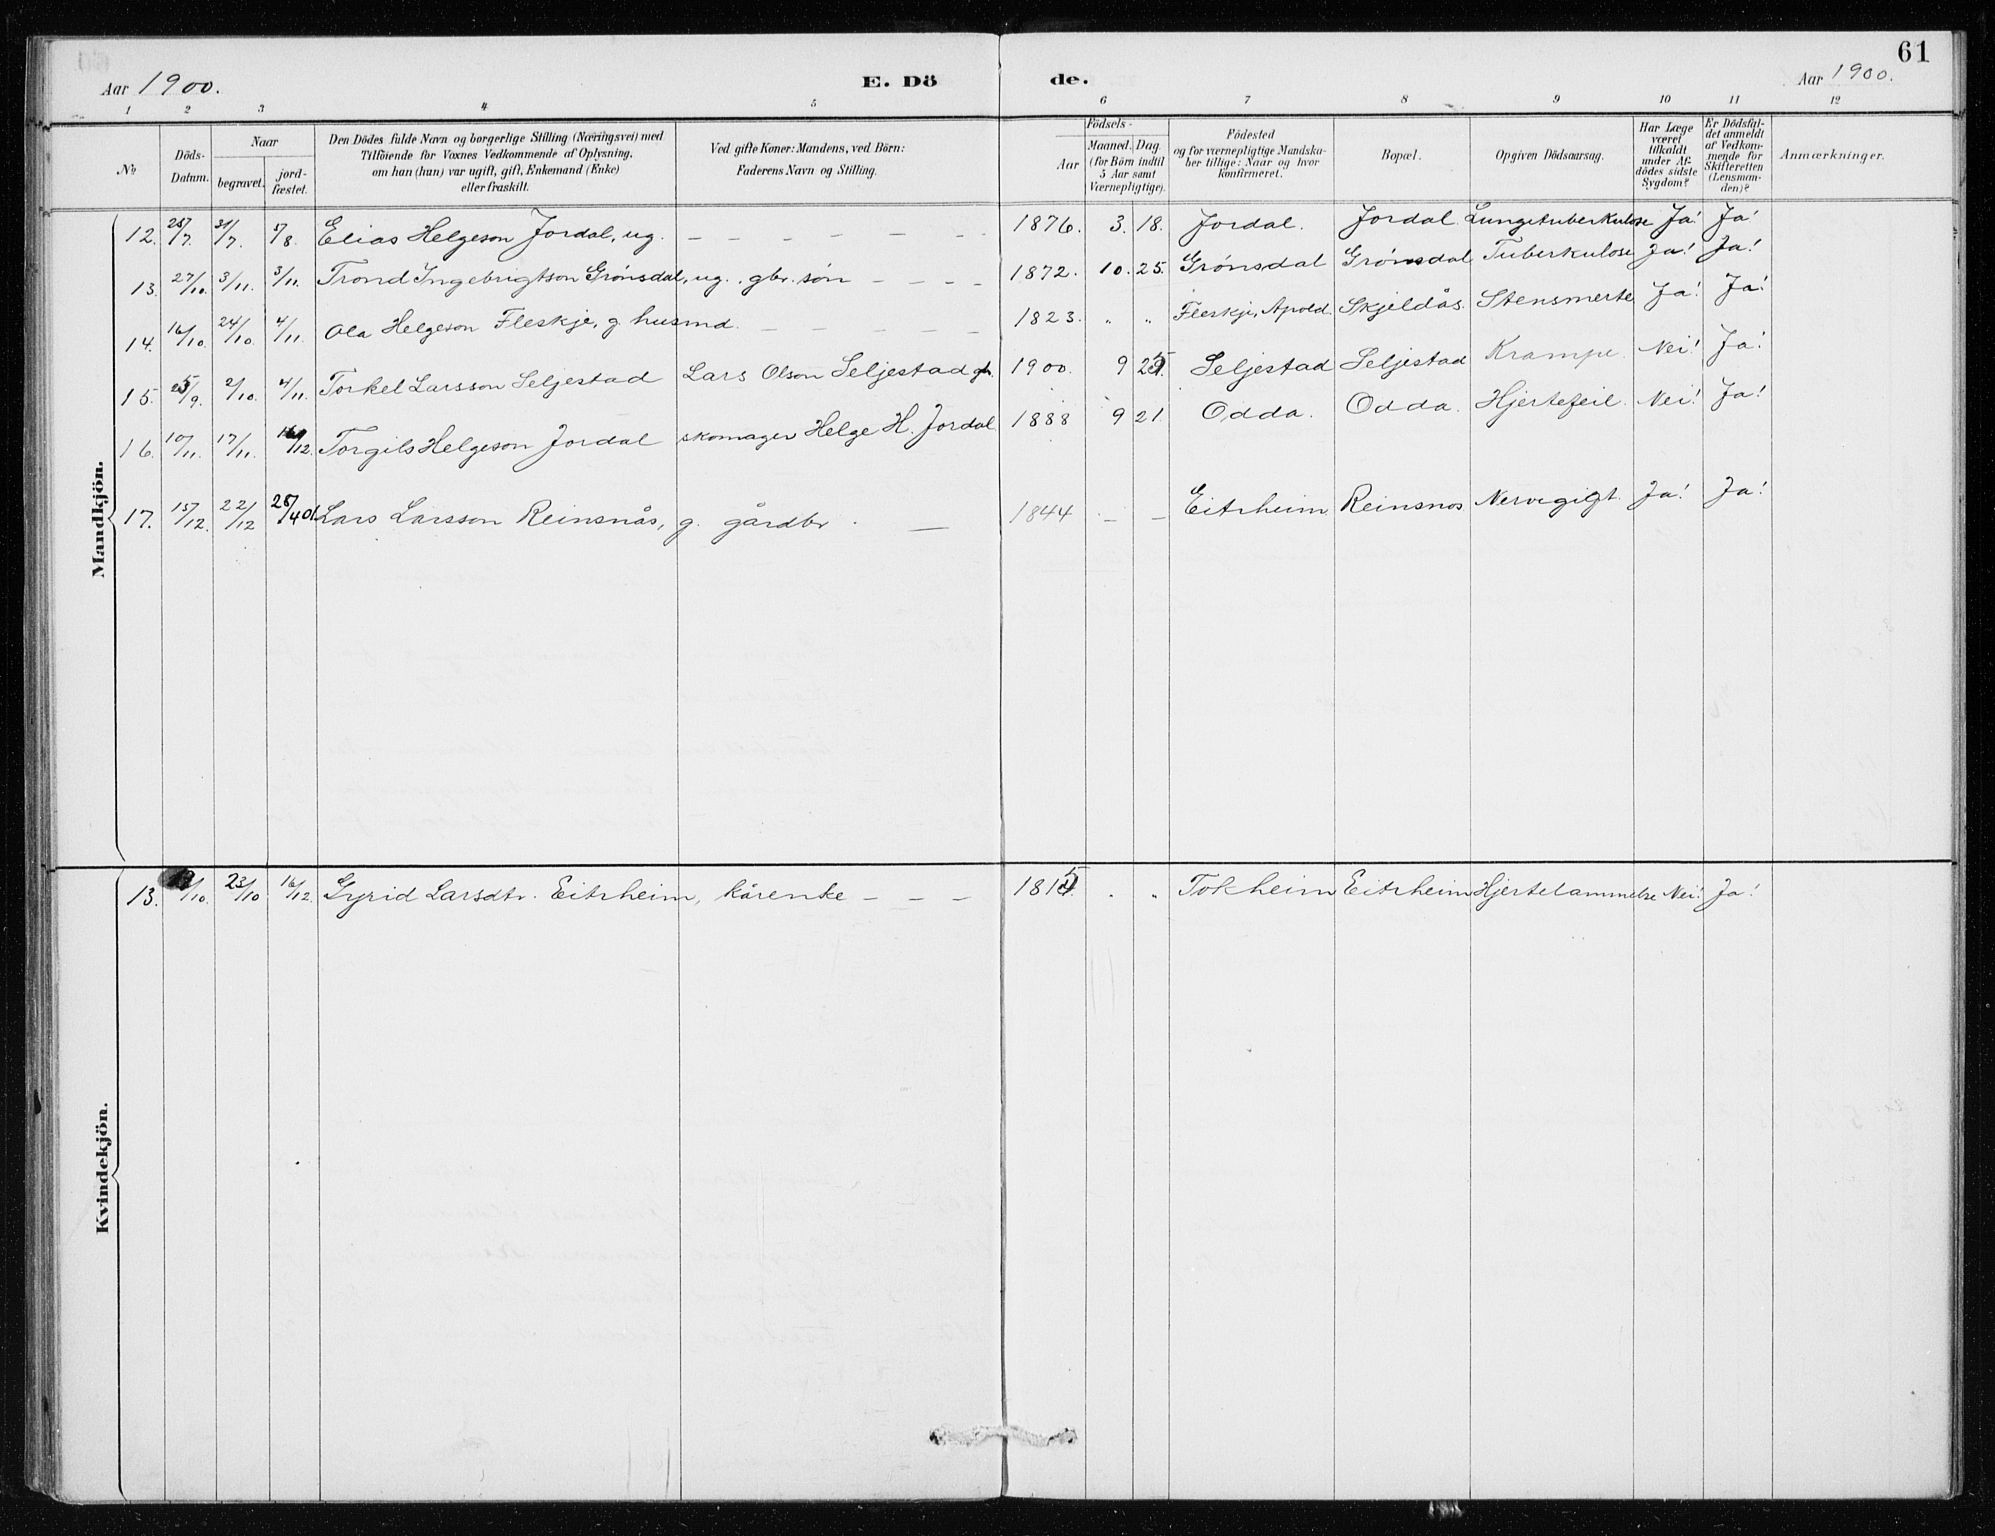 61
Aar 1900. E. Dö de. Aar 1900.
1 2 3 4 5 6 7 8 9 10 11 12
No
Döds-Datum.
Naar
begravet.
jord-fæstet.
Den Dödes fulde Navn og borgerlige Stilling (Næringsvei) med
Tilföiende for Voxnes Vedkommende af Oplysning,
om han (hun) var ugift, gift, Enkemand (Enke)
eller fraskilt.
Ved gifte Koner: Mandens, ved Börn:
Faderens Navn og Stilling.
Födsels-
Aar
Maaned. (for Börn indtil 5 Aar samt Værnepligtige).
Dag
Födested
og for værnepligtige Mandska-
ber tillige: Naar og hvor
konfirmeret.
Bopæl.
Opgiven Dödsaarsag.
Har Læge været tilkaldt under Af-dödes sidste Sygdom?
Er Dödsfal-det anmeldt af Vedkom-mende for Skifteretten (Lensman-den)?
Anmærkninger.
Mandkjön.
12. 31/7. 5/8. Elias Helgeson Jordal, ug. – – – – – – 1876. 3. 18. Jordal. Jordal Lungetuberkulose Ja! Ja!
13. 27/10. 3/11. 3/11. Trond Ingebrigtson Grönsdal, ug. gbr. søn – – – – 1872. 10. 25. Grønsdal Grønsdal Tuberkulose Ja! Ja!
14. 16/10. 24/10. 4/11. Ola Helgeson Fleskje, g. husmd. – – – – – 1823. " " Fleskje, Apold. Skjeldås. Stensmerte Ja! Ja!
15. 2/10. 4/11. Torkel Larsson Seljestad Lars Olson Seljestad 1900. 9 Seljestad Seljestad Krampe. Nei! Ja!
16. 10/11. 17/11. Torgils Helgeson Jordal skomager Helge H. Jordal 1888 9 21. Odda. Odda. Hjertefeil. Nei! Ja!
17. 15/12. 22/12 28/4 01. Lars Larsson Reinsnås, g. gårdbr. — 1844 – – Eitrheim Reinsnos Nervegigt. Ja! Ja!
Kvindekjön.
13. 23/10 16/12. Gyrid Larsdtr. Eitrheim, kårenke – – – . " Tokheim Eitrheim Hjertelammelse Nei! Ja!